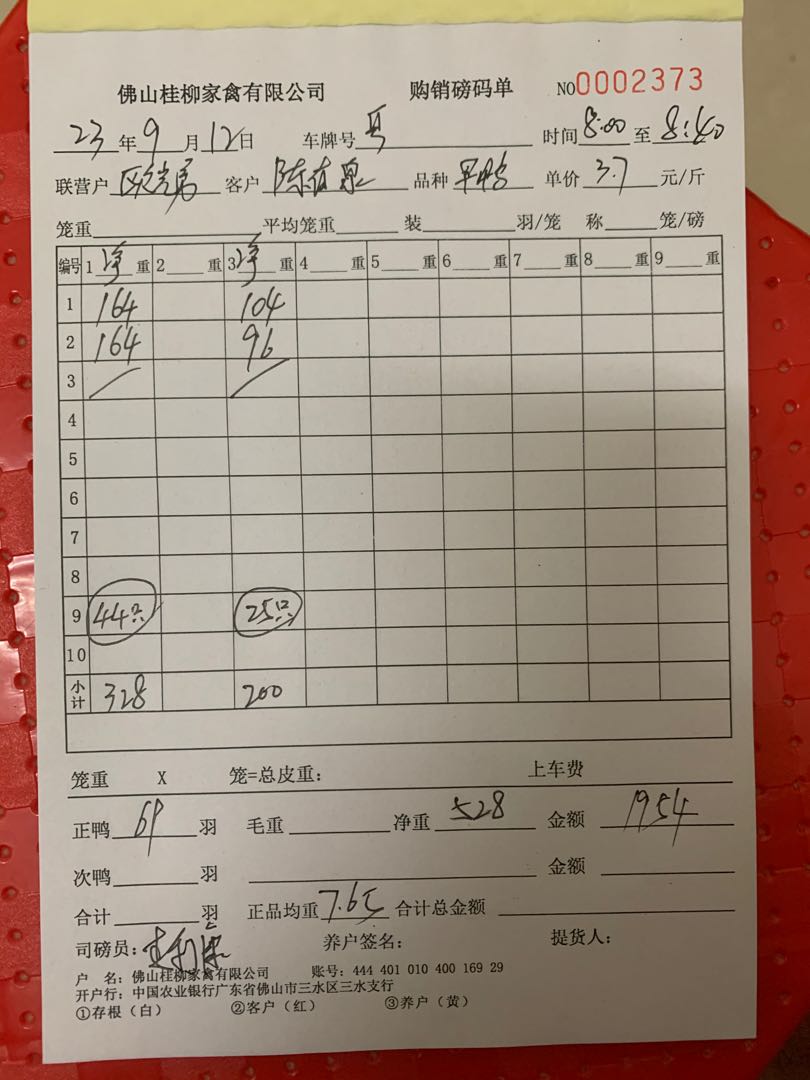 佛山桂柳家禽有限公司 购销磅码单 NO0002373
23年9月12日 车牌号 时间8:00至8:40
联营户 客户 陈 泉 品种 单价3.7元/斤
笼重 平均笼重 装 羽/笼 称 笼/磅
编号 1净重 2 重 3净重 4 重 5 重 6 重 7 重 8 重 9 重
1 164 104
2 164 96
3 / /
4
5
6
7
8
9 44只 25只
10
小计 328 200
笼重 X 笼=总皮重: 上车费
正鸭69羽 毛重 净重528 金额1954
次鸭 羽 金额
合计 羽 正品均重7.65 合计总金额
司磅员: 养户签名: 提货人:
户 名: 佛山桂柳家禽有限公司 账号: 444 401 010 400 169 29
开户行: 中国农业银行广东省佛山市三水区三水支行
①存根(白) ②客户(红) ③养户(黄)